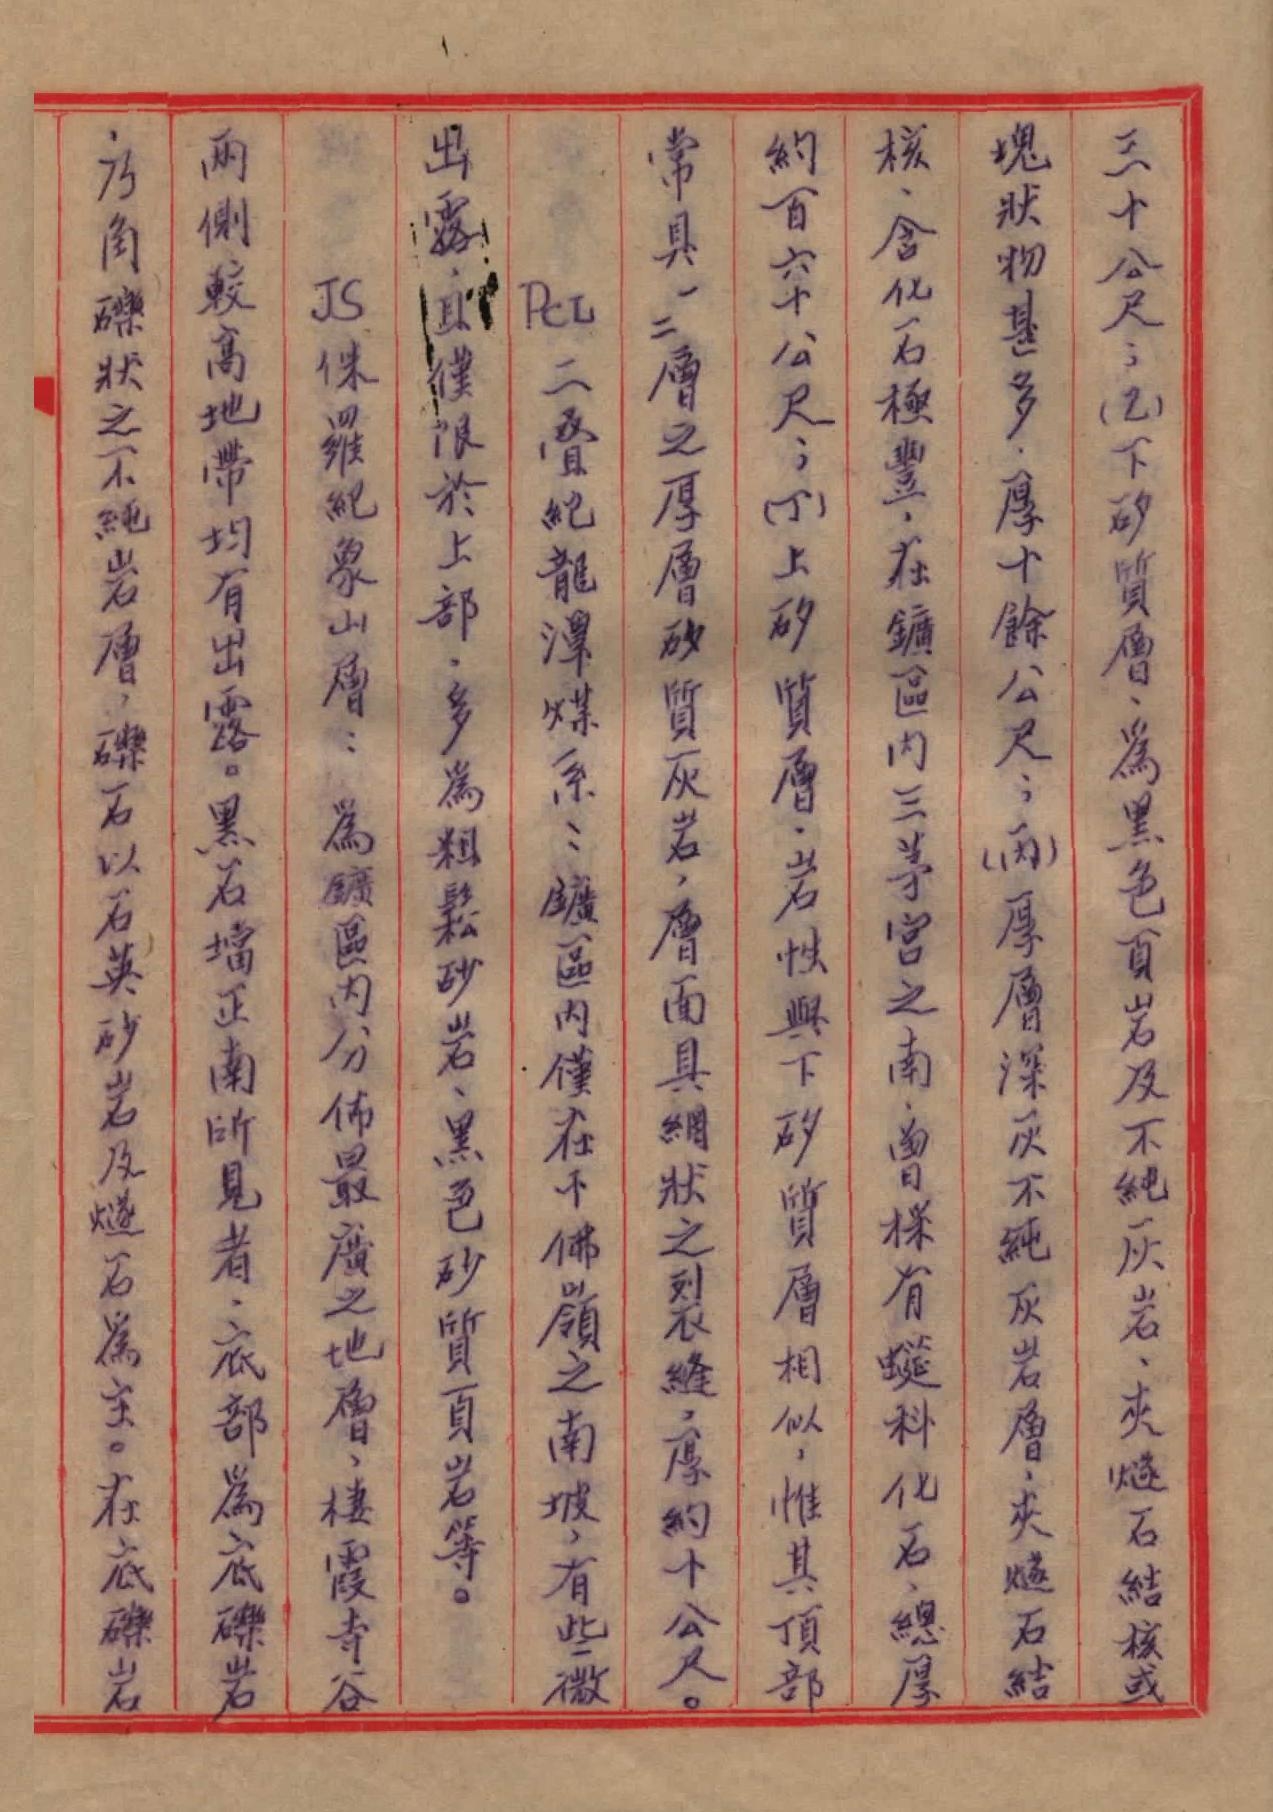 三十公尺；（乙）下矽質層、為黑色頁岩及不純灰岩、夾燧石結核或
塊狀物甚多、厚十餘公尺；（丙）厚層深灰不純灰岩層、夾燧石結
核、含化石極豐、在鑛區內三茅宮之南、曾採有蜓科化石、總厚
約百六十公尺；（丁）上矽質層、岩性與下矽質層相似，惟其頂部
常具一、二層之厚層矽質灰岩，層面具網狀之裂縫，厚約十公尺。
PcL 二疊紀龍潭煤系：鑛區內僅在下佛嶺之南坡，有些微
出露，且僅限於上部、多為粗鬆砂岩、黑色砂質頁岩等。
JS 侏羅紀象山層：為鑛區內分佈最廣之地層、棲霞寺谷
兩側較高地帶均有出露。黑石壋正南所見者、底部為底礫岩
，乃角礫狀之不純岩層，礫石以石英砂岩及燧石為主。在底礫岩